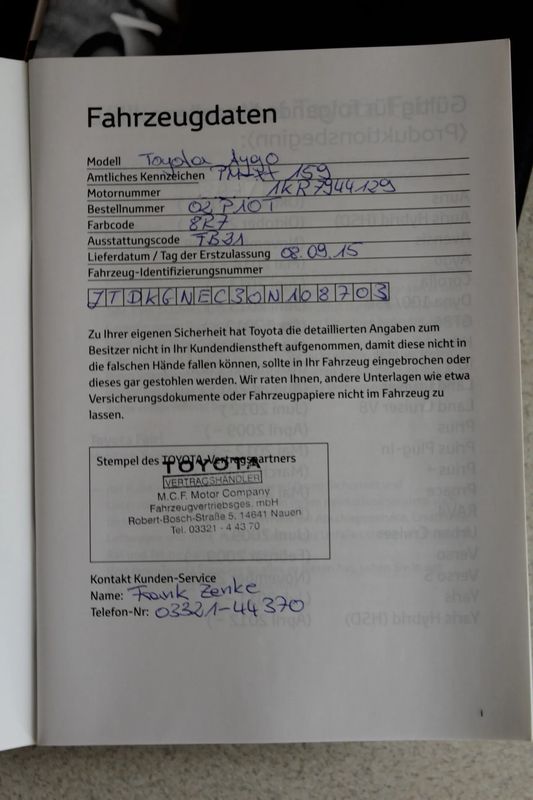 Fahrzeugdaten
Modell Toyota Aygo
Amtliches Kennzeichen 159
Motornummer 1KR7944129
Bestellnummer 02P10T
Farbcode 8R7
Ausstattungscode TB31
Lieferdatum / Tag der Erstzulassung 08.09.15
Fahrzeug-Identifizierungsnummer
JTDKGNEC30N108703
Zu Ihrer eigenen Sicherheit hat Toyota die detaillierten Angaben zum
Besitzer nicht in Ihr Kundendienstheft aufgenommen, damit diese nicht in
die falschen Hände fallen können, sollte in Ihr Fahrzeug eingebrochen oder
dieses gar gestohlen werden. Wir raten Ihnen, andere Unterlagen wie etwa
Versicherungsdokumente oder Fahrzeugpapiere nicht im Fahrzeug zu
lassen.
Stempel des TOYOTA-Vertragspartners
TOYOTA
VERTRAGSHÄNDLER
M.C.F. Motor Company
Fahrzeugvertriebsges. mbH
Robert-Bosch-Straße 5, 14641 Nauen
Tel. 03321 - 4 43 70
Kontakt Kunden-Service
Name: Frank Zenke
Telefon-Nr: 03321-44370
1